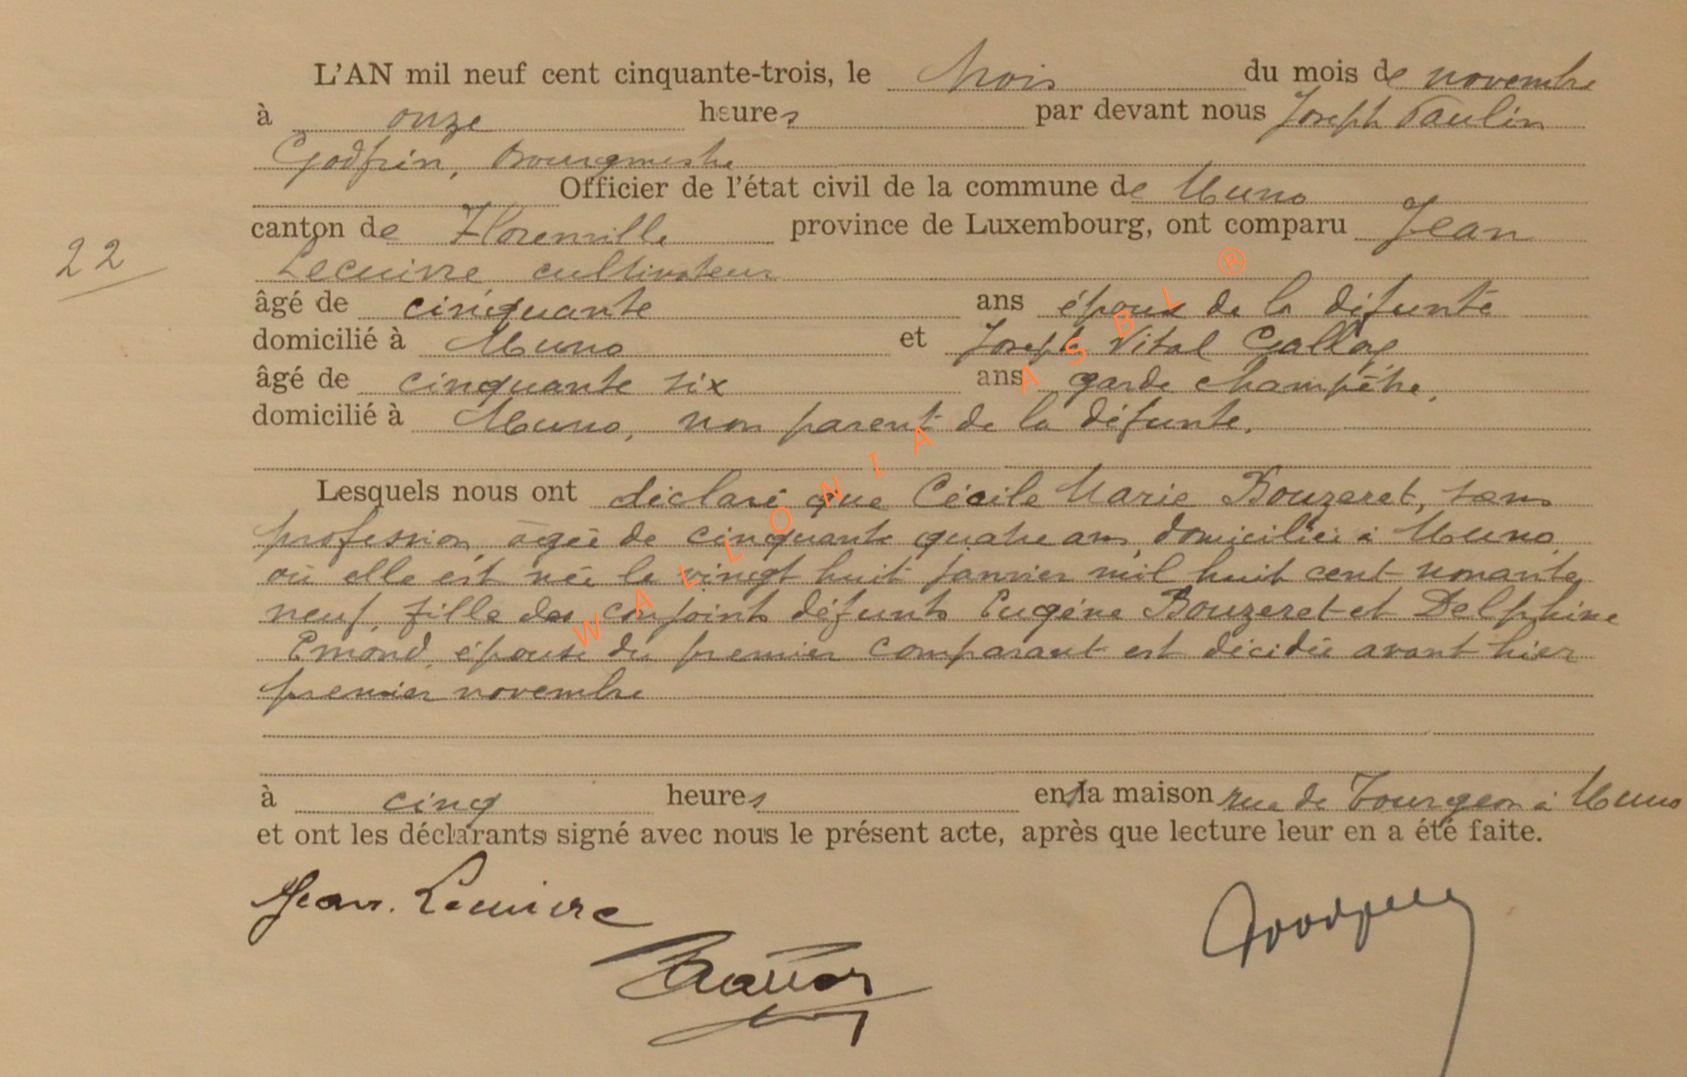 L'AN mil neuf cent cinquante-trois, le trois du mois de novembre
à onze heures par devant nous Joseph Paulin
Godfrin, Bourgmestre
Officier de l'état civil de la commune de Muno
canton de Florenville province de Luxembourg, ont comparu Jean
22
Lecuivre cultivateur
âgé de cinquante ans époux de la défunte
domicilié à Muno et Joseph Vital
âgé de cinquante six ans garde champêtre,
domicilié à Muno, non parent de la défunte.
Lesquels nous ont déclaré que Cécile Marie Bouzeret, sans
profession, âgée de cinquante quatre ans, domiciliée à Muno
où elle est née le vingt huit janvier mil huit cent nonante
neuf, fille des conjoints défunts Eugéne Bouzeret et Delphine
Emond, épouse du premier comparant est décédée avant hier
premier novembre
à cinq heures en la maison rue de Tourgeon à Muno
et ont les déclarants signé avec nous le présent acte, après que lecture leur en a été faite.
Jean. Lecuivre
WALLONIA ASBL ®